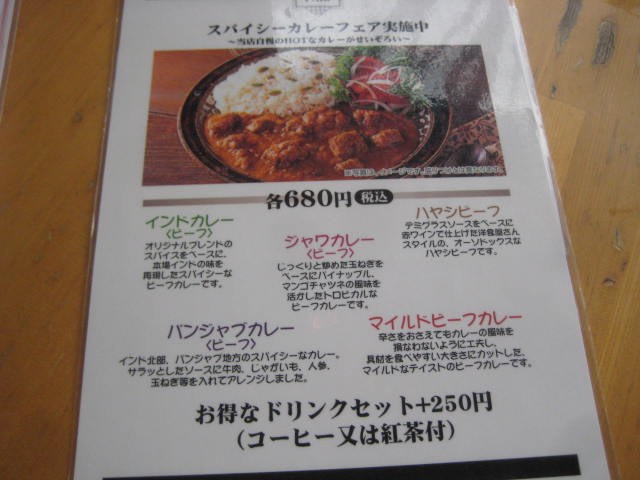 スパイシーカレーフェア実施中
～当店自慢のHOTなカレーがせいぞろい～
※写真はイメージです。盛りつけとは異なります。
各680円 税込
インドカレー
〈ビーフ〉
オリジナルブレンドの
スパイスをベースに、
本場インドの味を
再現したスパイシーな
ビーフカレーです。
ジャワカレー
〈ビーフ〉
じっくりと炒めた玉ねぎを
ベースにパイナップル、
マンゴチャツネの風味を
活かしたトロピカルな
ビーフカレーです。
ハヤシビーフ
デミグラスソースをベースに
赤ワインで仕上げた洋食屋さん
スタイルの、オーソドックスな
ハヤシビーフです。
パンジャブカレー
〈ビーフ〉
インド北部、パンジャブ地方のスパイシーなカレー。
サラッとしたソースに牛肉、じゃがいも、人参、
玉ねぎ等を入れてアレンジしました。
マイルドビーフカレー
辛さをおさえてもカレーの風味を
損なわないように工夫し、
具材を食べやすい大きさにカットした、
マイルドなテイストのビーフカレーです。
お得なドリンクセット+250円
（コーヒー又は紅茶付）